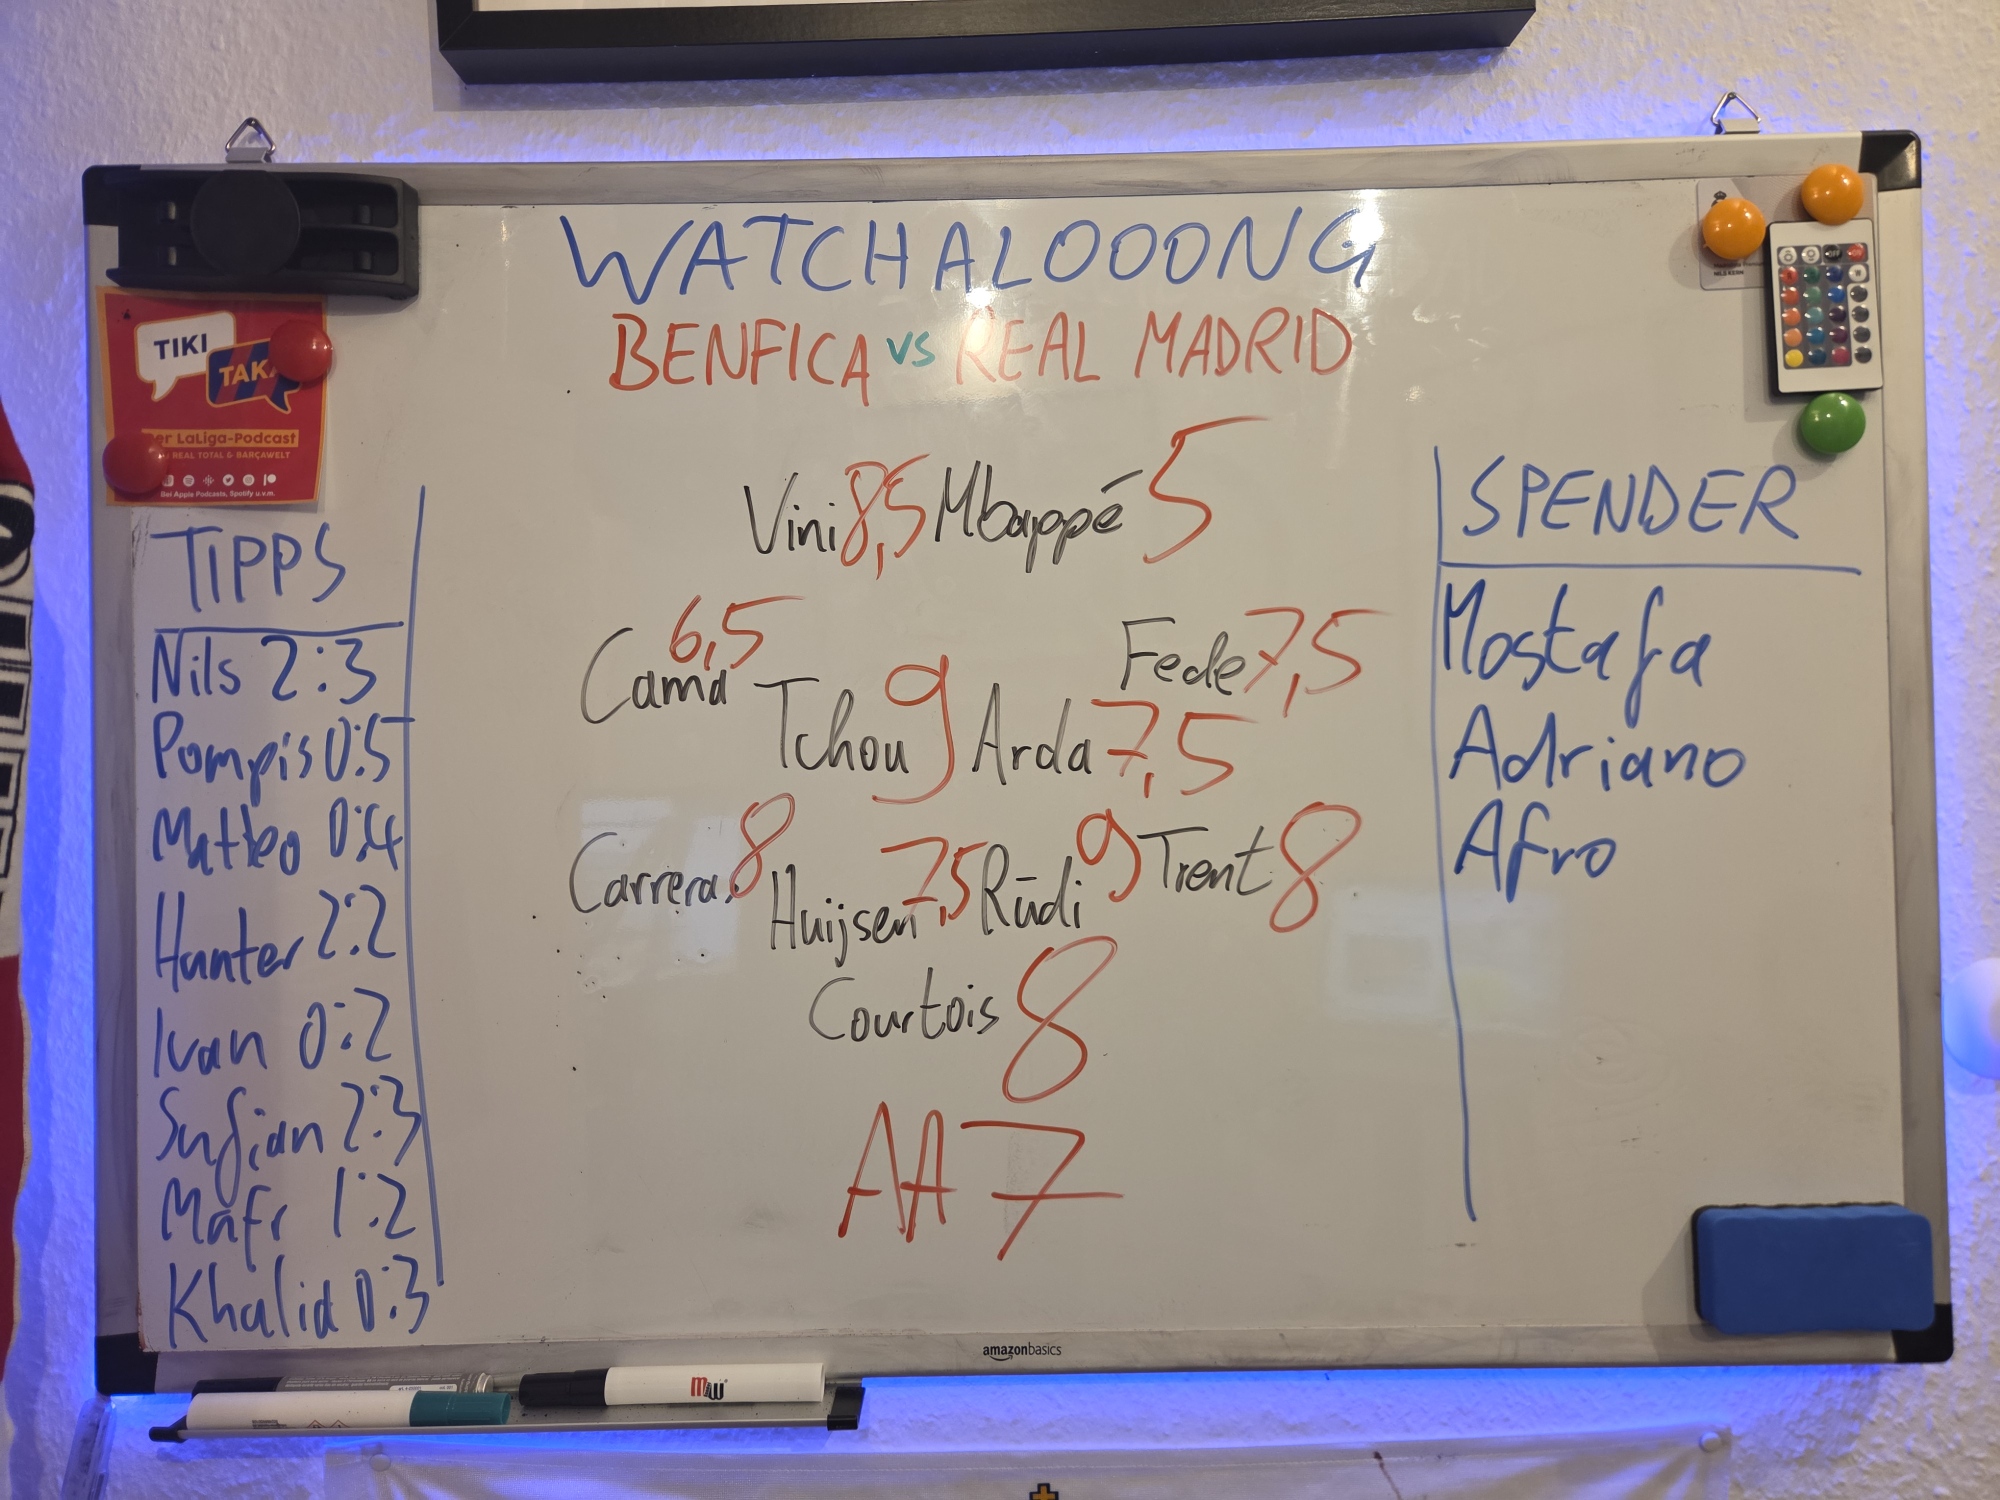 WATCHALOOONG
BENFICA vs REAL MADRID
TIKI
TAKA
Der LaLiga-Podcast
REAL TOTAL & BARÇAWELT
Bei Apple Podcasts, Spotify u.v.m.
NILS KERN
TIPPS
Nils 2:3
Pompis 0:5
Matteo 0:4
Hunter 2:2
Ivan 0:2
Sufian 2:3
Mafr 1:2
Khalid 0:3
Vini 8,5 Mbappé 5
Cama 6,5
Fede 7,5
Tchou 9 Arda 7,5
Carreras 8 Huijsen 7,5 Rüdi 9 Trent 8
Courtois 8
AA 7
SPENDER
Mostafa
Adriano
Afro
amazonbasics